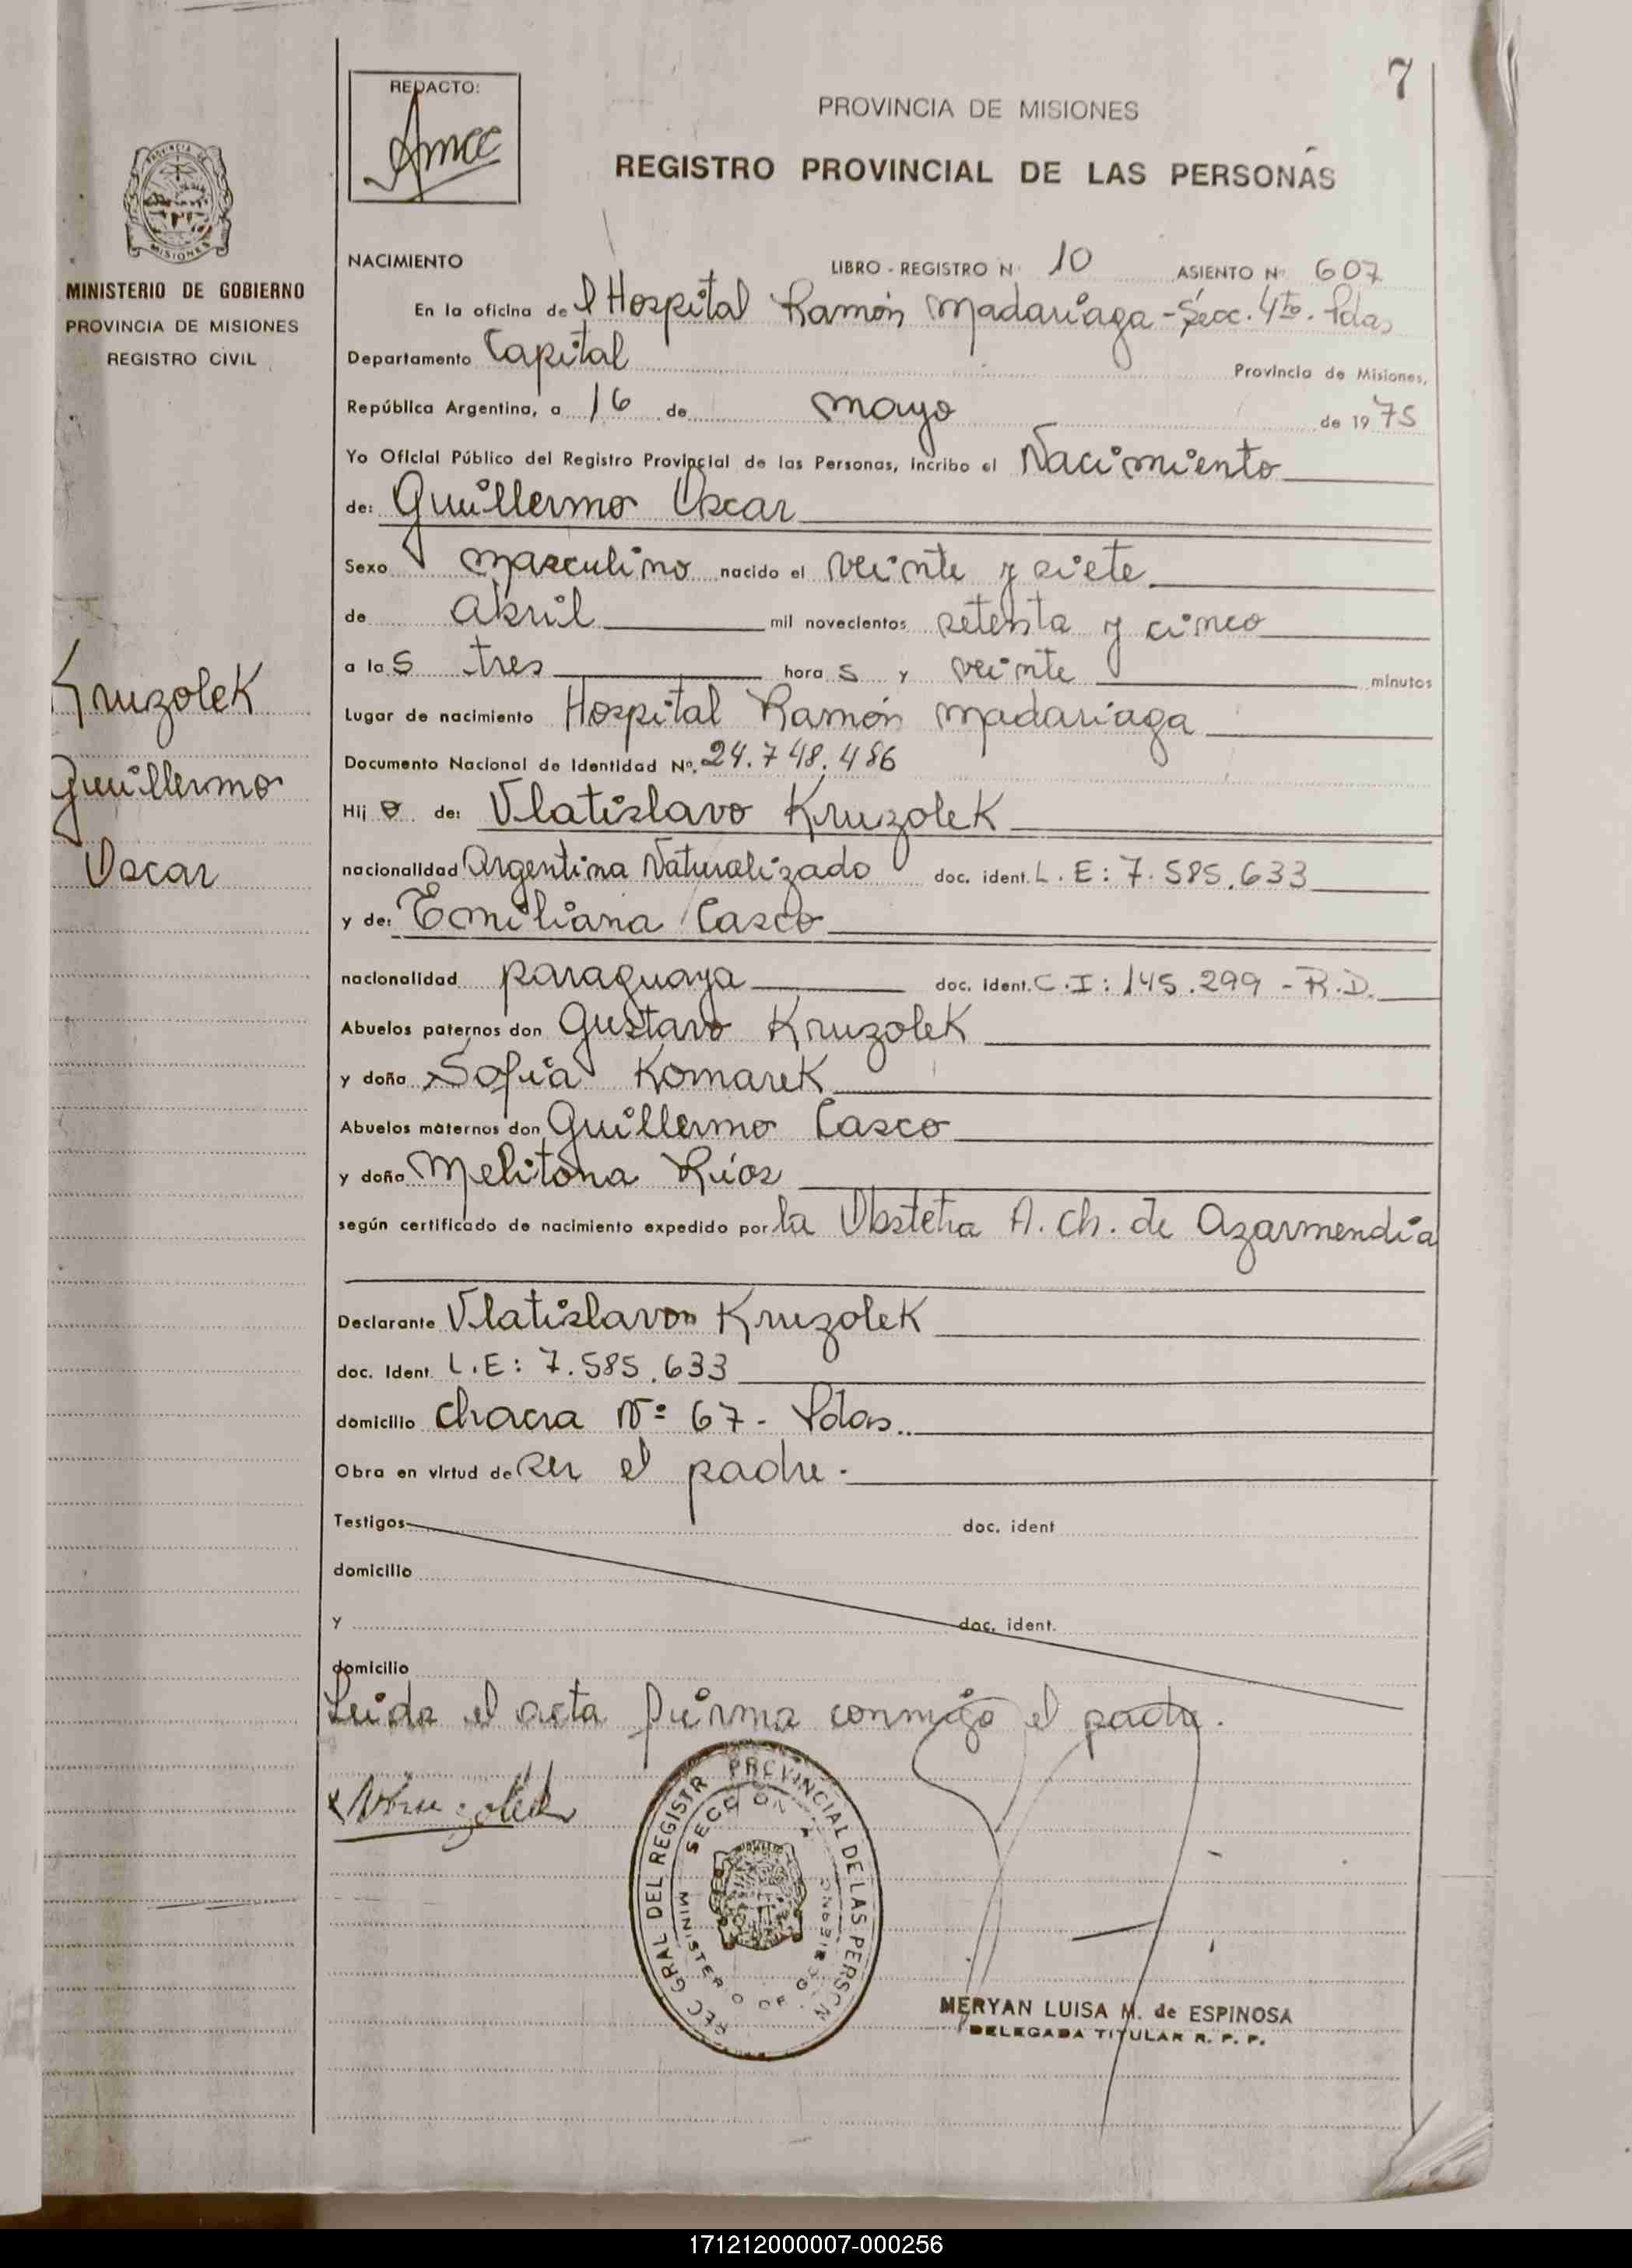 7
REDACTO:
PROVINCIA DE MISIONES
REGISTRO PROVINCIAL DE LAS PERSONAS
PROVINCIA DE
MISIONES
MINISTERIO DE GOBIERNO
PROVINCIA DE MISIONES
REGISTRO CIVIL
Kruzolek
Guillermo
Oscar
NACIMIENTO LIBRO - REGISTRO N° 10 ASIENTO N° 607
En la oficina del Hospital Ramón Madariaga - Secc. 4ta. Pdas
Departamento Capital Provincia de Misiones,
República Argentina, a 16 de mayo de 1975
Yo Oficial Público del Registro Provincial de las Personas, incribo el Nacimiento
de: Guillermo Oscar
Sexo masculino nacido el veinte y siete
de abril mil novecientos setenta y cinco
a las tres horas y veinte minutos
Lugar de nacimiento Hospital Ramón Madariaga
Documento Nacional de Identidad Nº. 24.748.486
Hijo de: Vlatislavo Kruzolek
nacionalidad Argentina Naturalizado doc. ident. L.E: 7.585.633
y de: Emiliana Casco
nacionalidad paraguaya doc. ident. C.I: 145.299 - R.D.
Abuelos paternos don Gustavo Kruzolek
y doña Sofía Komarek
Abuelos maternos don Guillermo Casco
y doña Melitona Ríos
según certificado de nacimiento expedido por la Obstetra A. Ch. de Azarmendia
Declarante Vlatislavo Kruzolek
doc. Ident. L.E: 7.585.633
domicilio chacra Nº 67 - Pdas.
Obra en virtud de ser el padre.
Testigos doc. ident
domicilio
y doc. ident.
domicilio
Leida el acta firma conmigo el padre.
Kruzolek
REC GRAL DEL REGISTR PROVINCIAL DE LAS PERSON
SECCION 4
MINISTERIO DE GOBIERNO
MERYAN LUISA M. de ESPINOSA
DELEGADA TITULAR R. P. P.
171212000007-000256